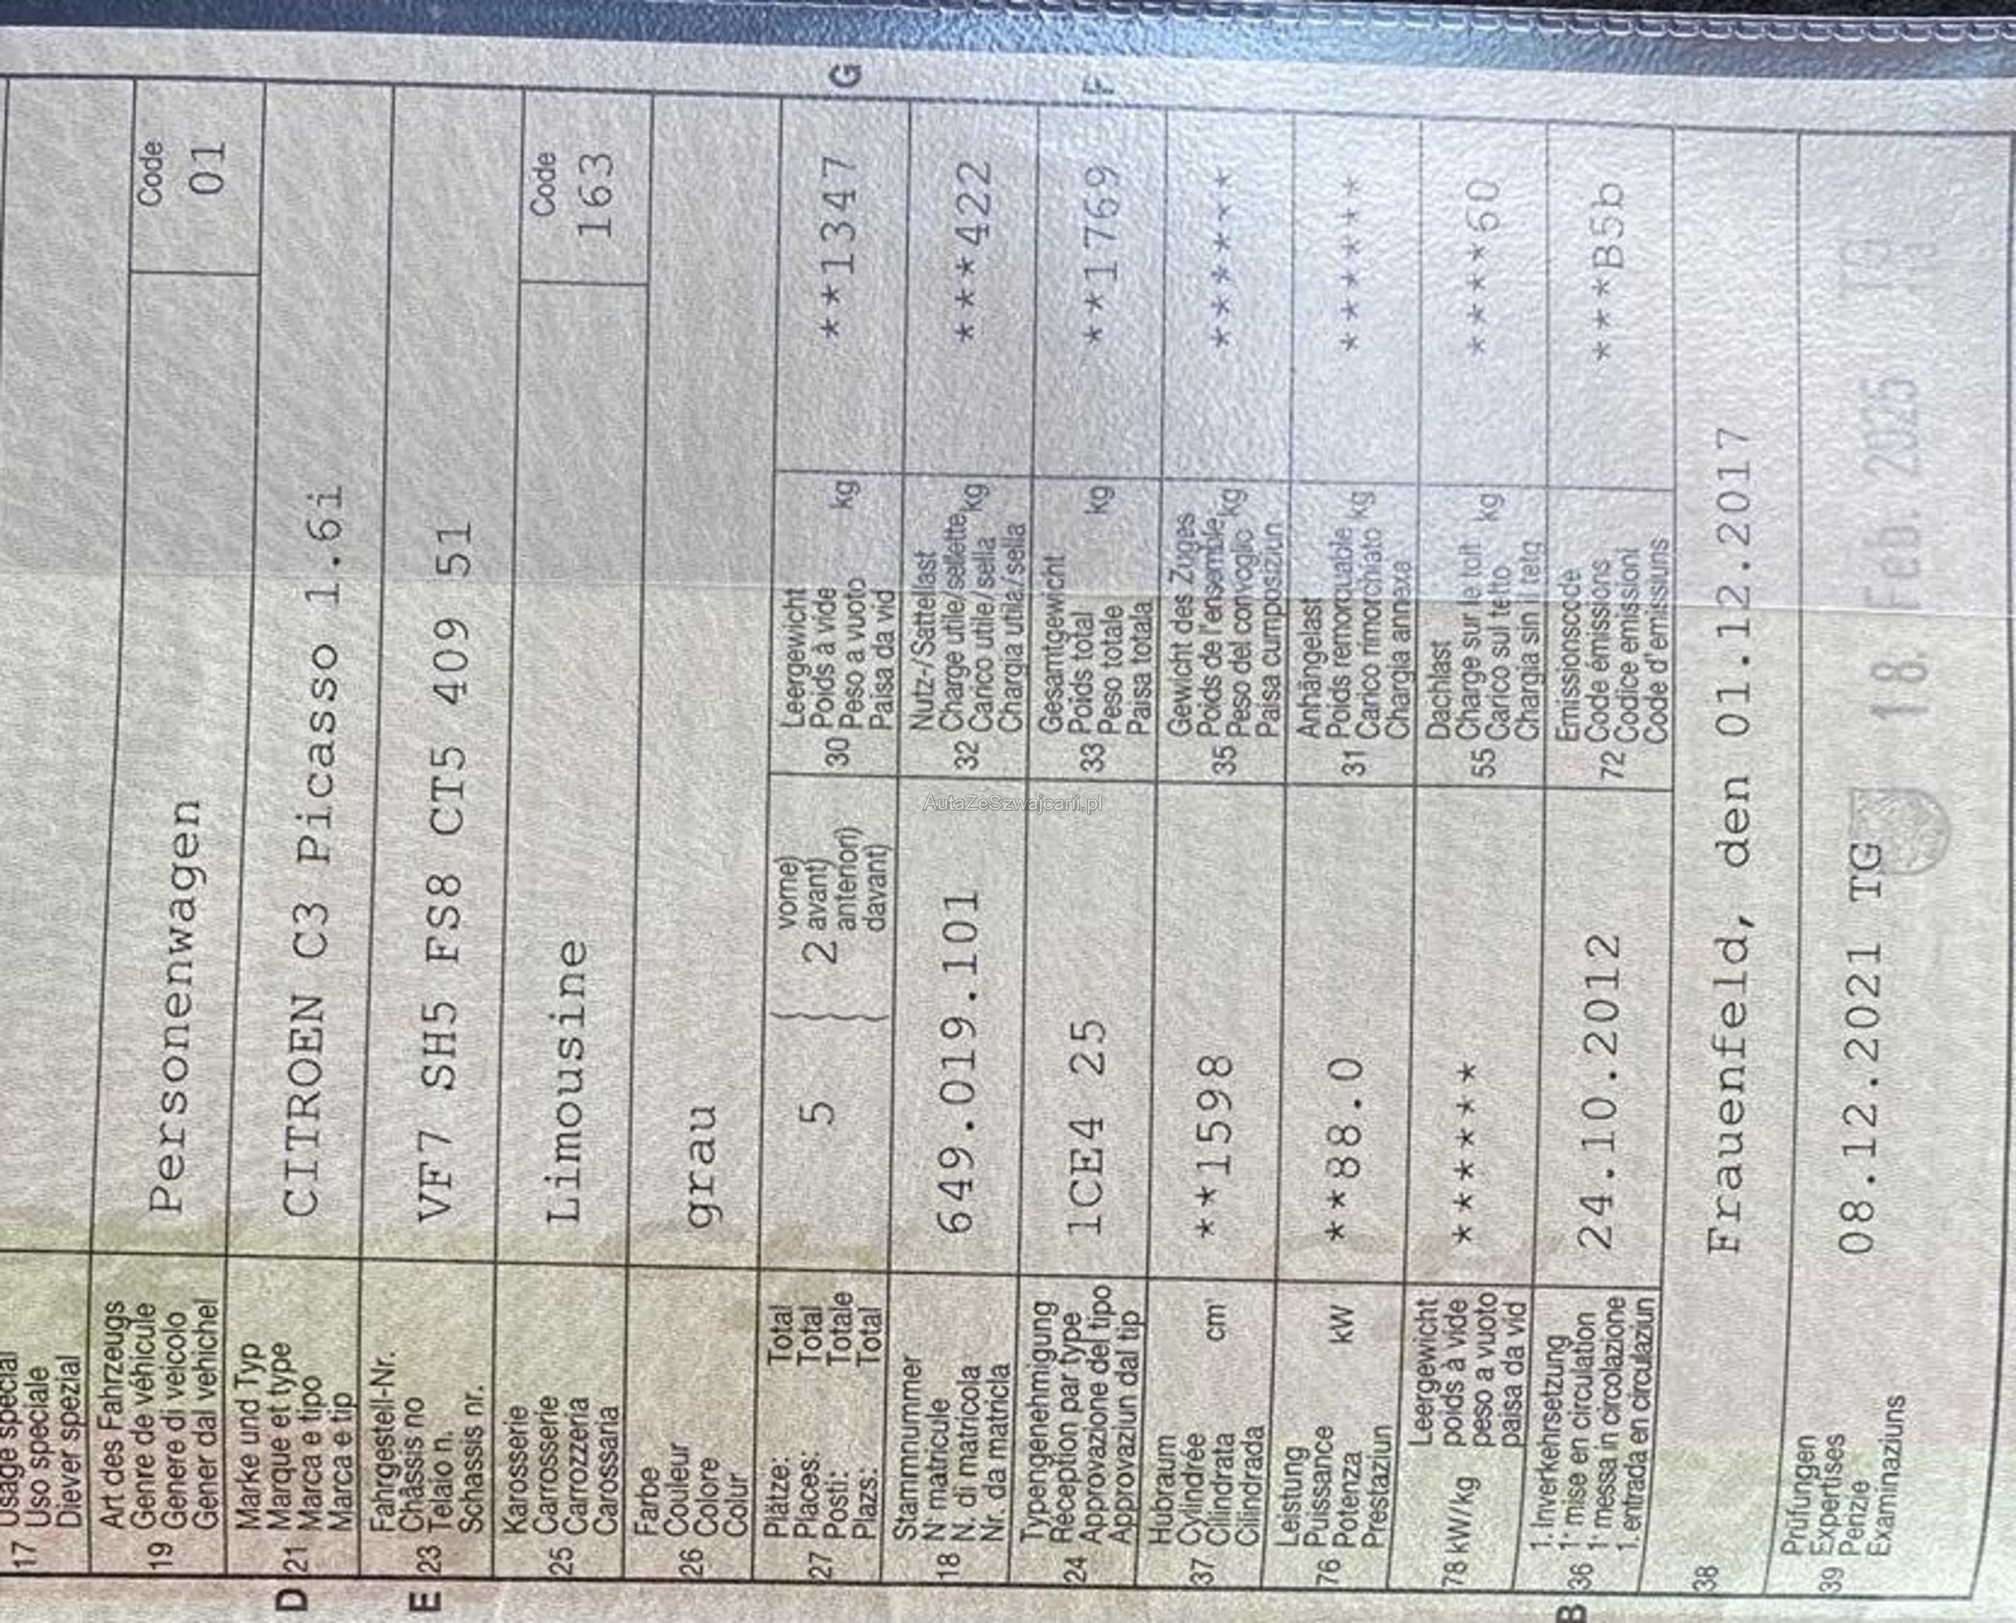 17 Usage spécial
Uso speciale
Diever spezial
Art des Fahrzeugs
Genre de véhicule
19 Genere di veicolo
Gener dal vehichel
Personenwagen
Code
01
Marke und Typ
Marque et type
D 21 Marca e tipo
Marca e tip
CITROEN C3 Picasso 1.6i
Fahrgestell-Nr.
Châssis no
E 23 Telaio n.
Schassis nr.
VF7 SH5 FS8 CT5 409 51
Karosserie
Carrosserie
25 Carrozzeria
Carossaria
Limousine
Code
163
Farbe
Couleur
26 Colore
Colur
grau
Plätze: Total
Places: Total
27 Posti: Totale
Plazs: Total
5 { 2
vorne)
avant)
anteriori)
davant)
Leergewicht
Poids à vide
30 Peso a vuoto kg
Paisa da vid
**1347
G
Stammnummer
N° matricule
18 N. di matricola
Nr. da matricla
649.019.101
Nutz-/Sattellast
Charge utile/sellette
32 Carico utile/sella kg
Chargia utila/sella
****422
Typengenehmigung
Réception par type
24 Approvazione del tipo
Approvaziun dal tip
1CE4 25
Gesamtgewicht
33 Poids total kg
Peso totale
Paisa totala
**1769
F
Hubraum
37 Cylindrée cm³
Cilindrata
Cilindrada
**1598
Gewicht des Zuges
Poids de l'ensemble
35 Peso del convoglio kg
Paisa cumposiziun
*******
Leistung
76 Puissance kW
Potenza
Prestaziun
**88.0
Anhängelast
Poids remorquable
31 Carico rimorchiato kg
Chargia annexa
*******
Leergewicht
78 kW/kg poids à vide
peso a vuoto
paisa da vid
******
Dachlast
Charge sur le toit
55 Carico sul tetto kg
Chargia sin il tetg
*****60
1. Inverkehrsetzung
B 36 1ʳᵉ mise en circulation
1ª messa in circolazione
1. entrada en circulaziun
24.10.2012
Emissionscode
Code émissions
72 Codice emissioni
Code d'emissiuns
****B5b
38
Frauenfeld, den 01.12.2017
Prüfungen
39 Expertises
Perizie
Examinaziuns
08.12.2021 TG
18. Feb. 2025 TG
AutaZeSzwajcarii.pl